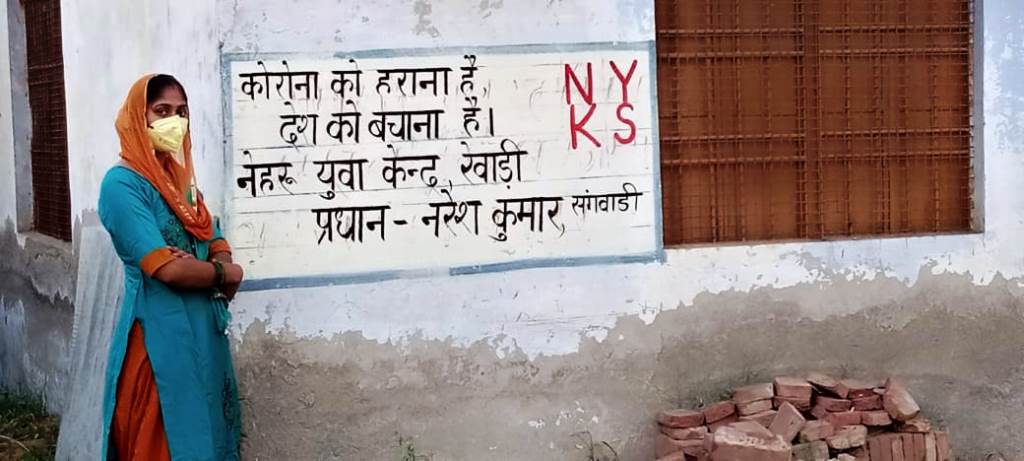 कोरोना को हराना है,
देश को बचाना है।
नेहरू युवा केन्द्र, रेवाड़ी
प्रधान - नरेश कुमार, संगवाडी
NY
KS